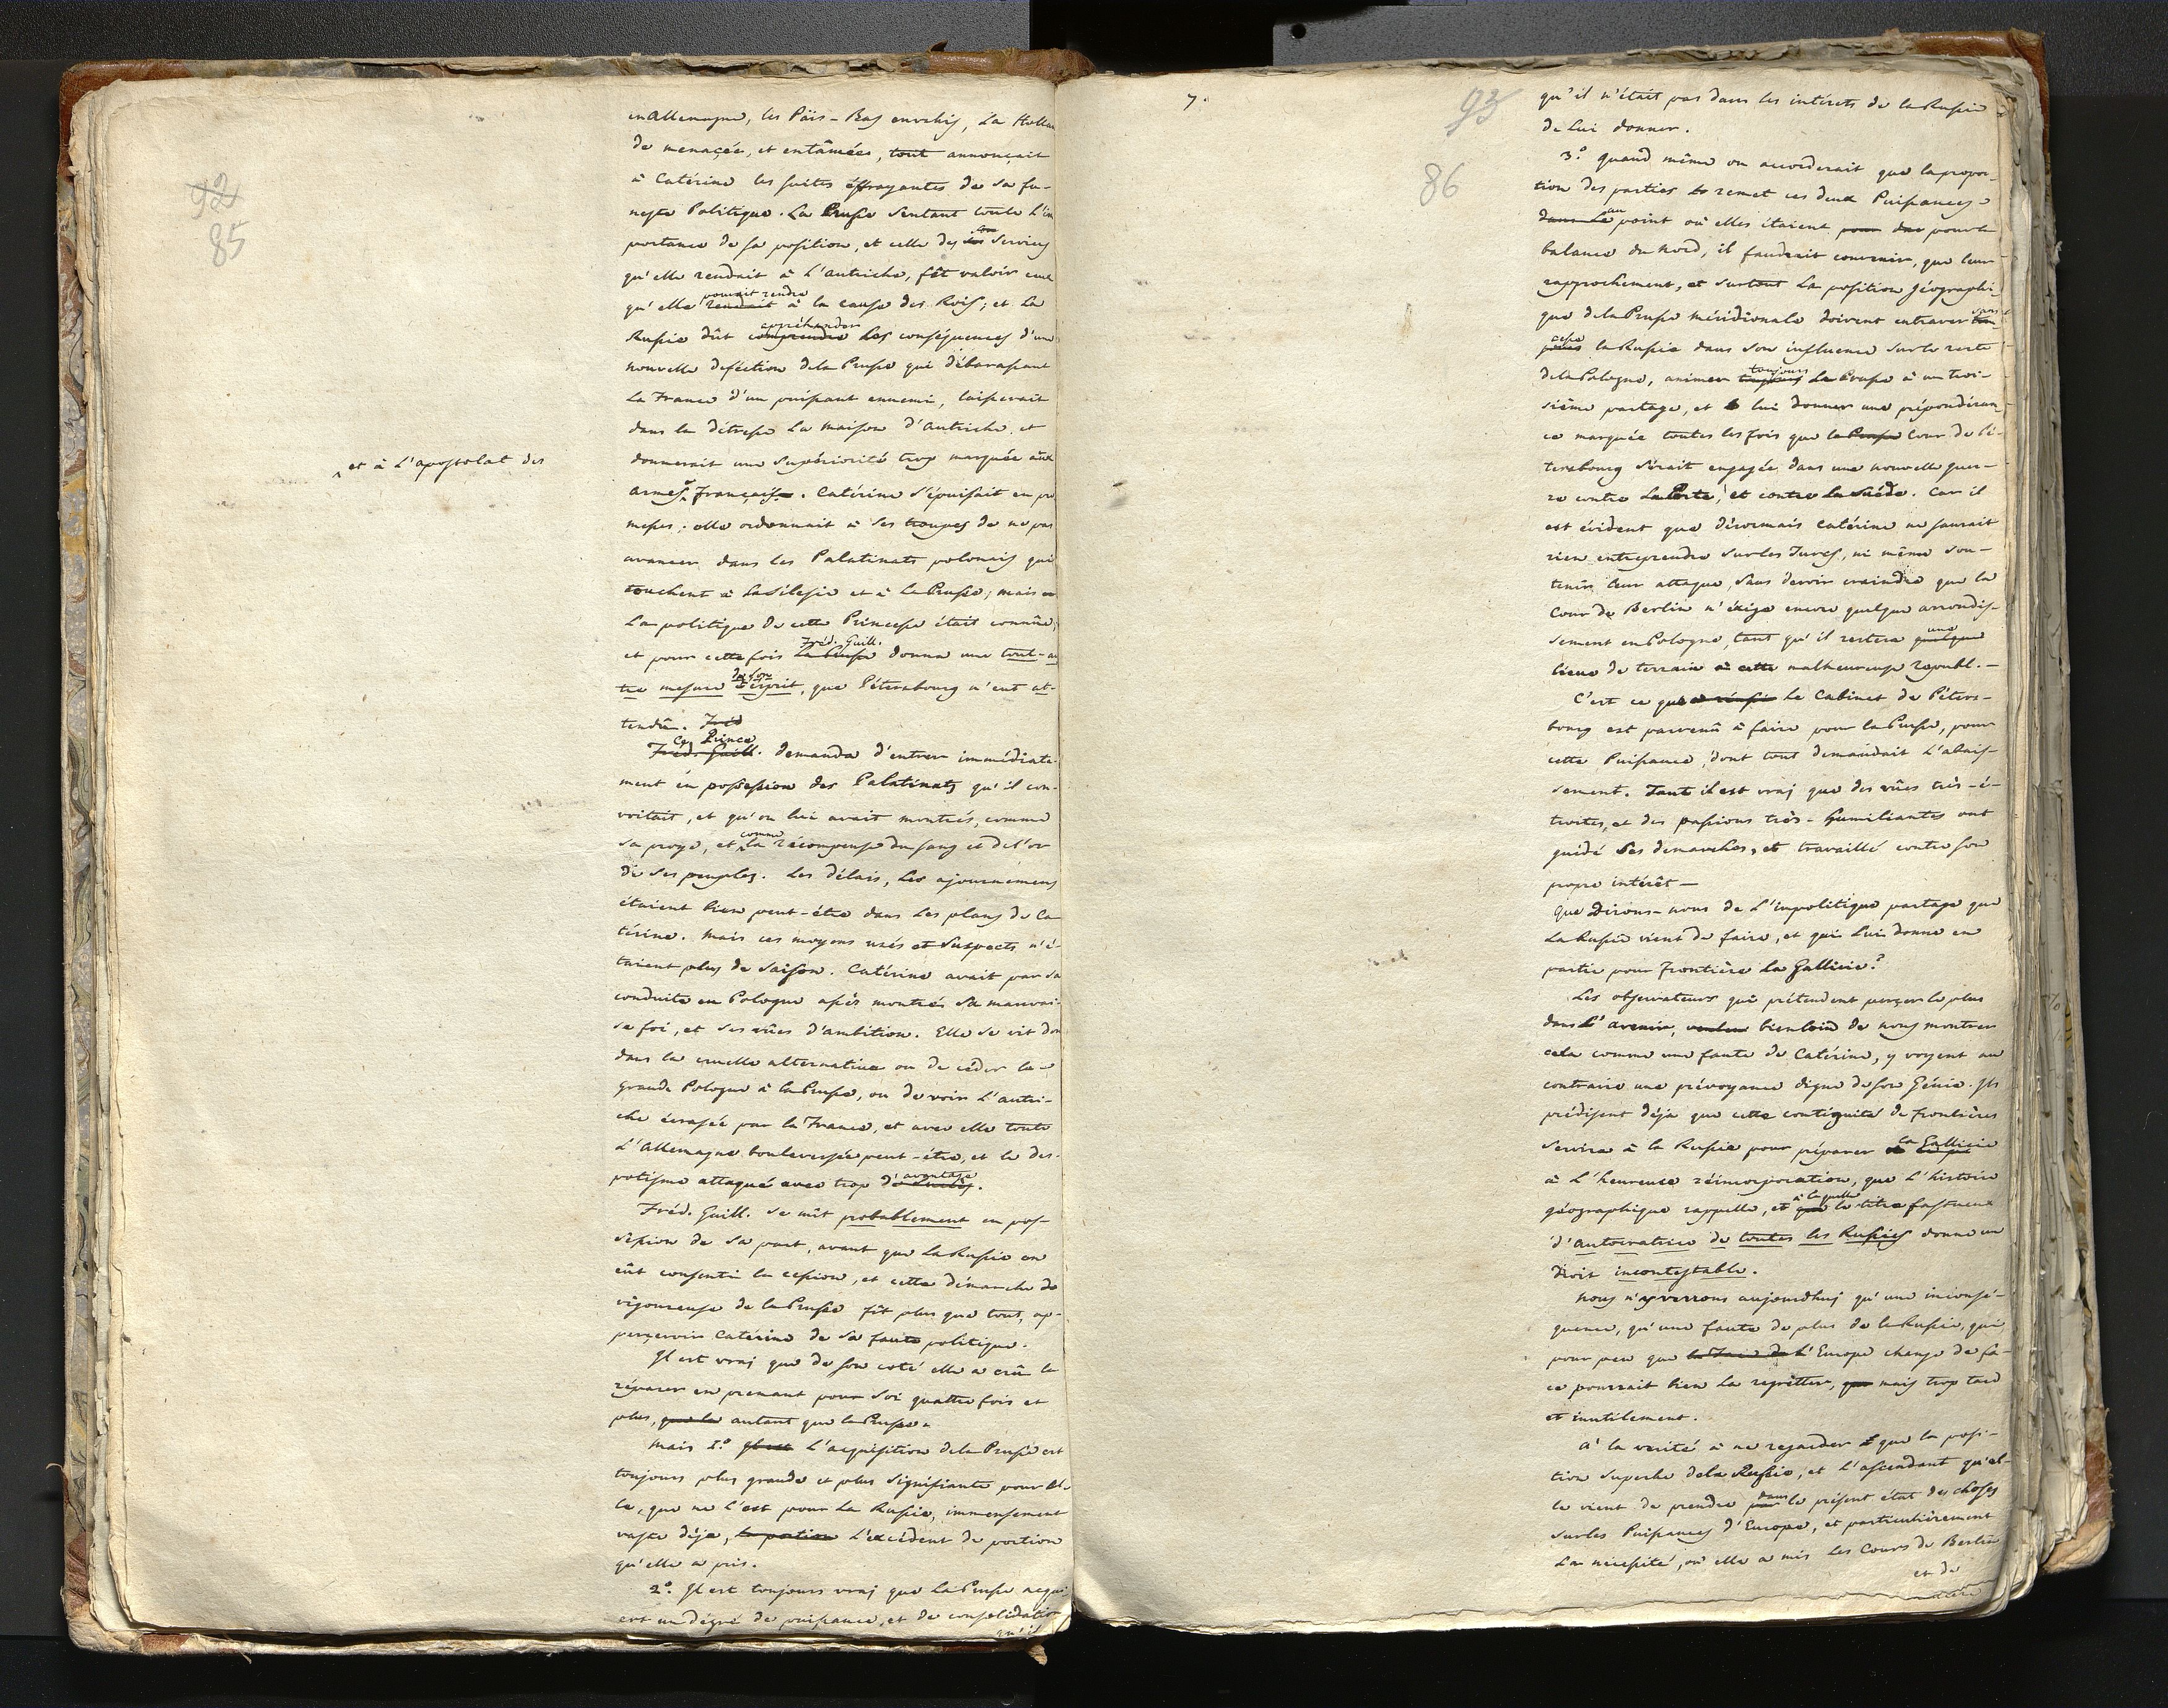 92
85
et à l'apostolat des
en Allemagne, les Païs-Bas envahis, La Hollan
de menaçée, et entâmées, tout annonçait
à Catérine les suites éffrayantes de sa fu-
neste Politique. La Prusse sentant toute l'im
portance de sa position, et celle des services
qu'elle rendait à L'autriche, fît valoir ceux
pouvait rendre
qu'elle rendait à la cause des Rois; et La
appréhender
Russie dût comprendre Les conséquences d'une
nouvelle deféction de la Prusse qui débarassant
La France d'un puissant ennemi, laisserait
dans la détresse La maison d'autriche, et
donnerait une Supériorité trop marquée aux
armes Français. Catérine s'épuisait en pro
messes; elle ordonnait à ses troupes de ne pas
avancer dans les Palatinats polonais qui
touchent à la Silésie et à la Prusse; mais
La politique de cette Princesse était connûe;
Fréd. Guill.
et pour cette fois La Prusse donna une tout-au
de son
tre mesure d'esprit, que Pétersbourg n'eut at-
tendû. Fréd
Ce Prince
Fréd. Guill. demanda d'entrer immédiate-
ment en possession des Palatinats qu'il con-
voitait, et qu'on lui avait montrés, comme
comme
sa proye, et la récompense du sang et de l'or
de ses peuples. Les délais, Les ajournemens
étaient bien peut-être dans Les plans de Ca-
térine. Mais ces moyens usés et suspects n'é-
taient plus de saison. Catérine avait par sa
conduite en Pologne assés montrés sa mauvai-
se foi, et ses vûes d'ambition. Elle se vit don
dans la cruelle alternative ou de céder la
grande Pologne à la Prusse, ou de voir L'autri-
che écrasée par la France, et avec elle toute
L'Allemagne bouleversée peut-être, et le des-
avantage
potisme attaqué avec trop d'
Fréd. Guill. se mît probablement en pos-
session de sa part, avant que La Russie en
eût consenti la cession, et cette démarche
vigoureuse de la Prusse fît plus que tout, ap-
perçevoir Catérine de sa faute politique.
Il est vrai que de son coté elle a crû la
réparer en prenant pour soi quattre fois et
plus, que la autant que la Prusse.
Mais 1.º Il est L'acquisition de la Prusse est
toujours plus grande et plus signifiante pour el-
le, que ne L'est pour La Russie, immensement
vaste déja, la portion L'excédent de portion
qu'elle a pris.
2.º Il est toujours vrai que La Prusse acqui
ert un dégré de puissance, et de consolidation
qu'il
7.
93
86
qu'il n'était pas dans les intérets de la Russie
de lui donner.
3.º quand même on accorderait que la propor-
tion des parties remet ces deux Puissances
au
dans Le point où elles étaient pour la
balance du Nord, il faudrait convenir, que leur
rapprochement, et surtout La position géographi-
que de la Prusse méridionale doivent entraver sans
cesse
la Russie dans son influence sur le reste
toujours
de la Pologne, animer toujours La Prusse à un troi-
sième partage, et lui donner une prépondéran-
ce marquée toutes les fois que la Prusse Cour de Pé-
tersbourg sérait engagée dans une nouvelle guer-
re contre La Porte, et contre la Suéde. Car il
est évident que désormais Catérine ne saurait
rien entreprendre sur les Turcs, ni même sou-
tenir leur attaque, sans devoir craindre que la
Cour de Berlin n'éxige encore quelque arrondis-
une
sement en Pologne, tant qu'il restera quelque
lieue de terrain à cette malheureuse republ.-
C'est ce que Le Cabinet de Péters-
bourg est parvenû à faire pour la Prusse, pour
cette Puissance, dont tout demandait L'abais-
sement. Tant il est vrai que des vûes très-é-
troites, et des passions très-humiliantes ont
guidé ses demarches, et travaillé contre son
propre intérêt -
Que Dirons-nous de L'impolitique partage que
La Russie vient de faire, et qui Lui donne en
partie pour Frontière La Gallicie?
Les observateurs qui prétendent perçer le plus
dans L'avenir, bien loin de nous montrer
cela comme une faute de Catérine, y voyent au
contraire une prévoyance digne de son Génie. Ils
prédisent déja que cette contiguité de Frontières
la Gallicie
servira à la Russie pour préparer
à L'heureuse réincorporation, que L'histoire
à laquelle
géographique rappelle, et que le titre fastueux
d'autocratrice de toutes les Russies donne un
Droit incontestable.
Nous n'y verrons aujourdhuj qu'une inconsé-
quence, qu'une faute de plus de la Russie, qui
pour peu que la Face de L'Europe change de fa-
ce pourrait bien La regrêtter, mais trop tard
et inutilement.
A' la verité à ne regarder que la posi-
tion superbe de la Russie, et L'ascendant qu'el-
dans
le vient de prendre par le présent état des choses
sur les Puissances d'Europe, et particulièrement
La nécessité, où elle a mis Les Cours de Berlin
et de